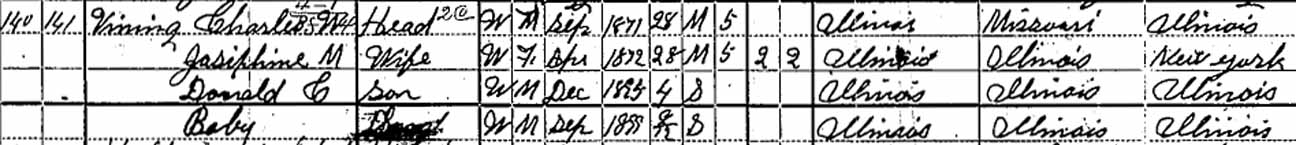 140 141 Vining Charlie W Head W M Sep 1871 28 M 5 Illinois Missouri Illinois
Josiphine M Wife W F Apr 1872 28 M 5 2 2 Illinois Illinois New York
Donald C Son W M Dec 1895 4 S Illinois Illinois Illinois
Baby W M Sep 1899 8/12 S Illinois Illinois Illinois